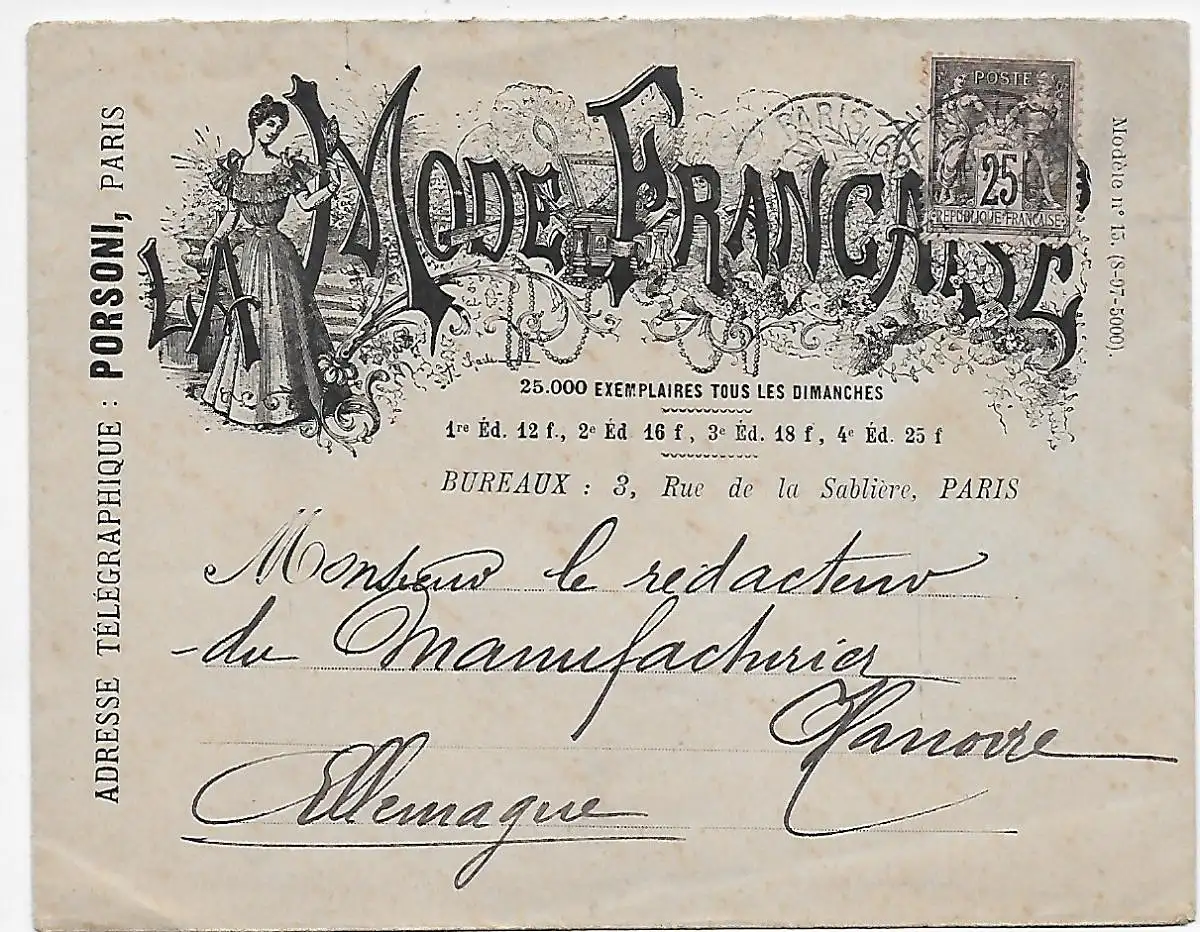 LA MODE FRANÇAISE
POSTE
25
REPUBLIQUE FRANÇAISE
PARIS
25.000 EXEMPLAIRES TOUS LES DIMANCHES
1re Éd. 12 f., 2e Éd 16 f, 3e Éd. 18 f, 4e Éd. 25 f
BUREAUX : 3, Rue de la Sablière, PARIS
Monsieur le rédacteur
du Manufacturier
Hanovre
Allemagne
ADRESSE TÉLÉGRAPHIQUE : PORSONI, PARIS
Modèle n° 15. (8-97-5000).